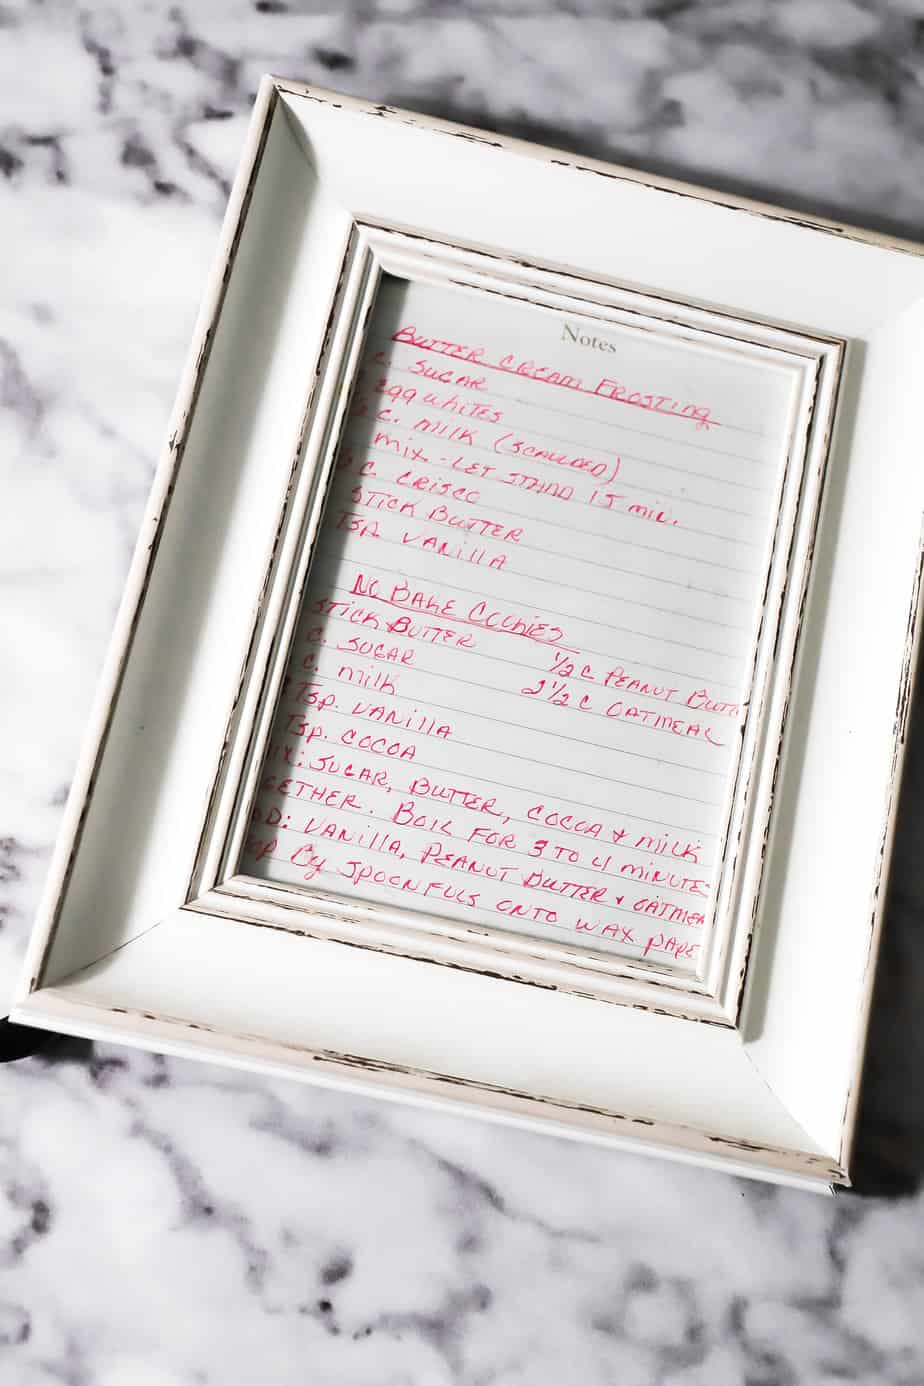 Notes
BUTTER CREAM FROSTING
C. SUGAR
EGG WHITES
C. MILK (SCALDED)
MIX - LET STAND 15 MIN.
C CRISCO
STICK BUTTER
TSP. VANILLA
NO BAKE COOKIES
STICK BUTTER
1/2 C PEANUT BUTT
C. SUGAR
2 1/2 C OATMEAL
C. MILK
TSP. VANILLA
TSP. COCOA
IX: SUGAR, BUTTER, COCOA & MILK
GETHER. BOIL FOR 3 TO 4 MINUTES
D: VANILLA, PEANUT BUTTER & OATMEA
OP BY SPOONFULS ONTO WAX PAPE